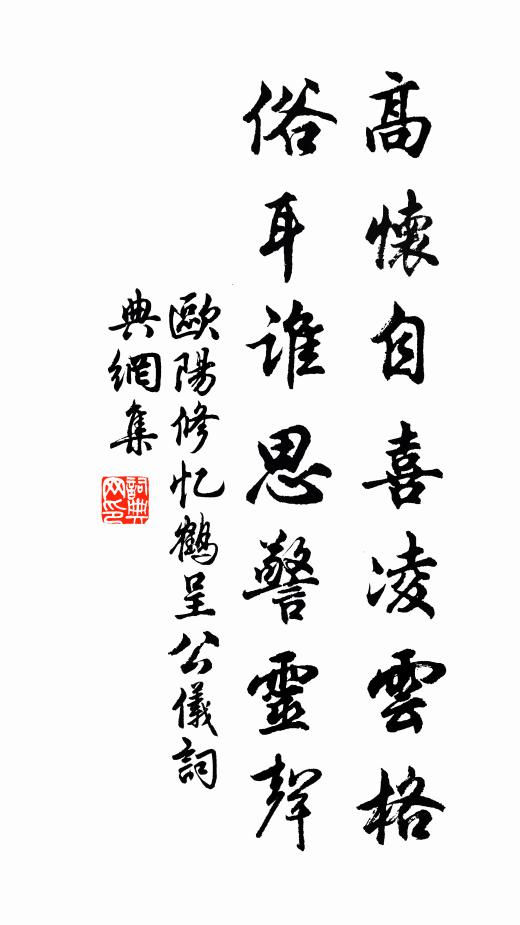 高懷自喜凌雲格
俗耳誰思警靈聲
歐陽修忆鶴呈公儀詞
典網集
詞典网印